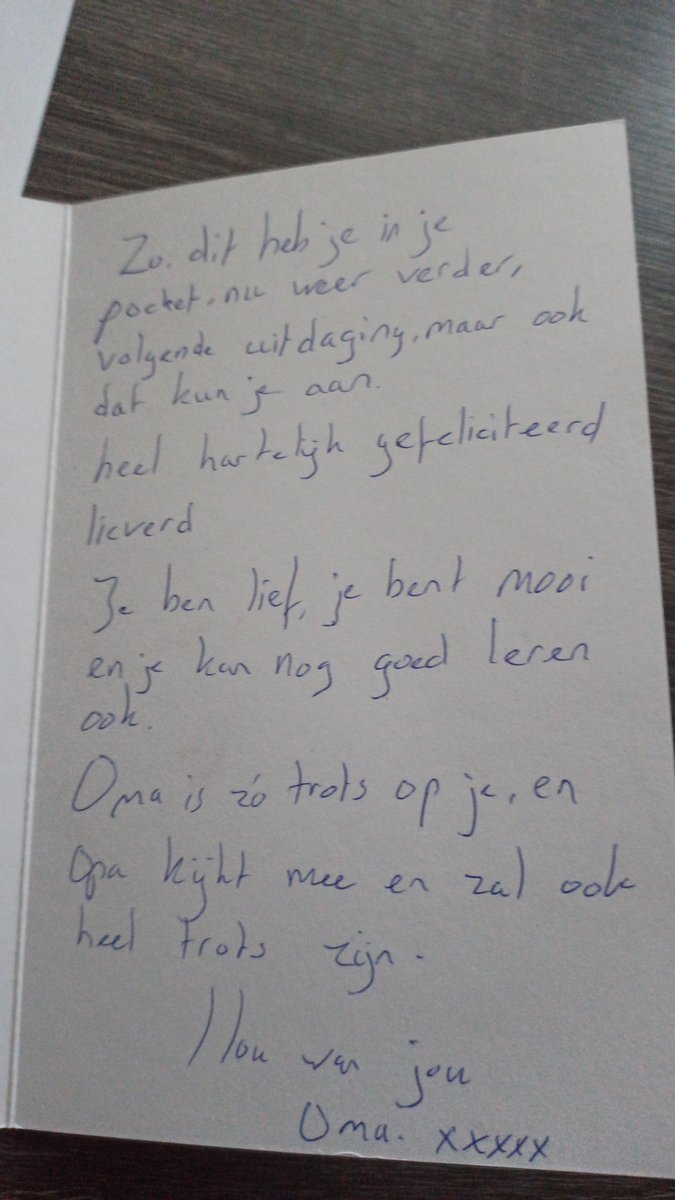 Zo. dit heb je in je
pocket, nu weer verder,
volgende uitdaging, maar ook
dat kun je aan.
heel hartelijk gefeliciteerd
lieverd
Je ben lief, je bent mooi
en je kan nog goed leren
ook.
Oma is zó trots op je, en
Opa kijkt mee en zal ook
heel trots zijn.
Hou van jou
Oma. xxxxx